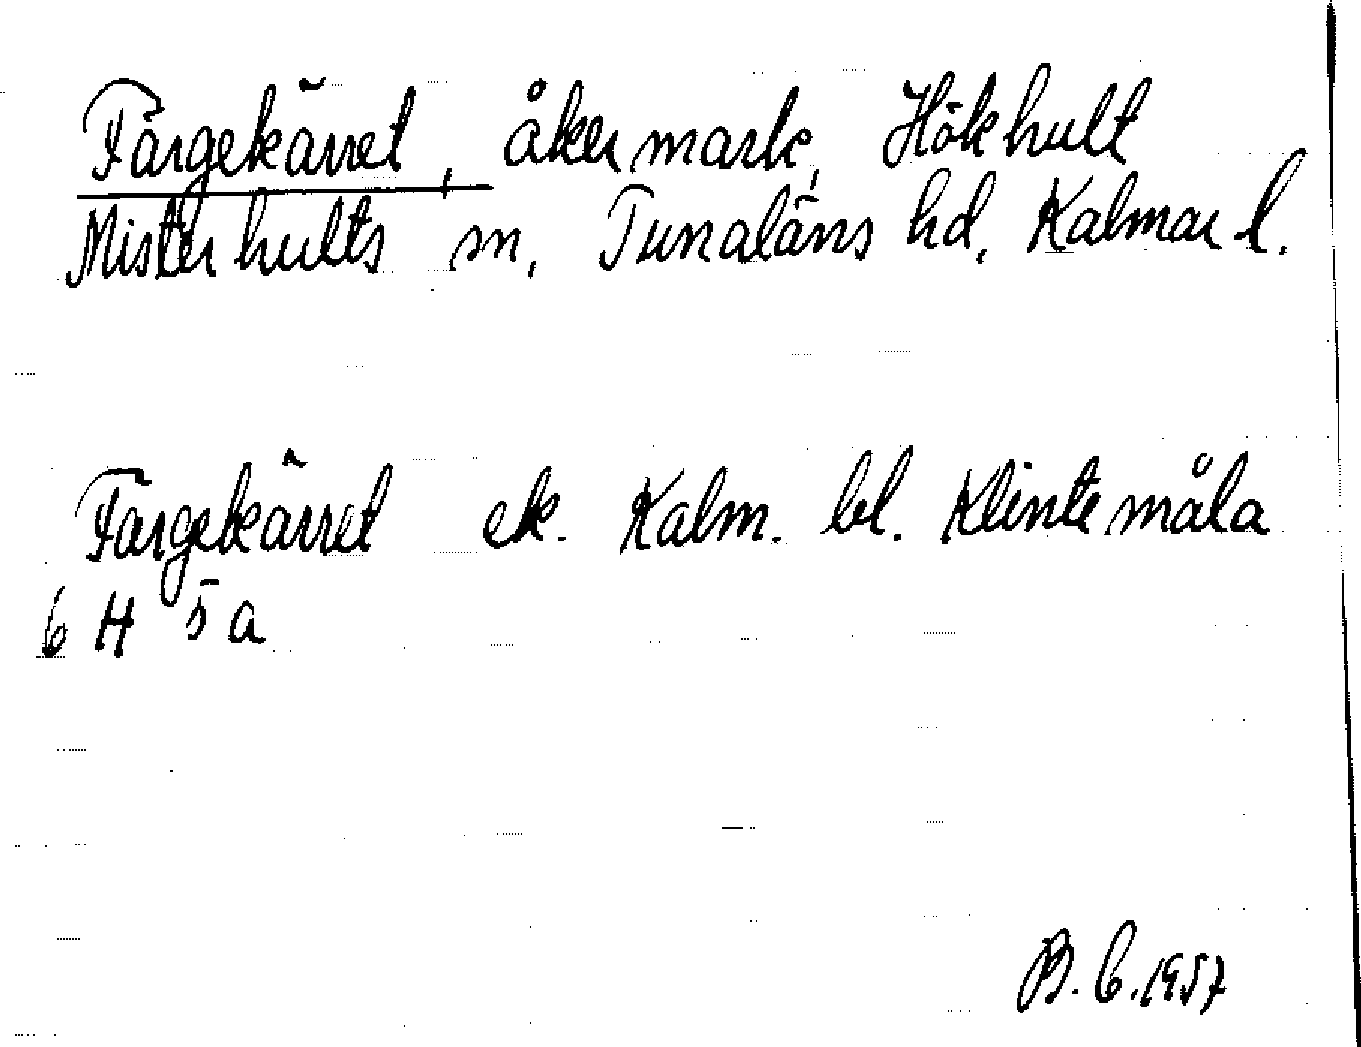 Färgekärret, åkermark, Hökhult
Misterhults sn, Tunaläns hd, Kalmar l.
Färgekärret ek. Kalm. bl. Klintemåla
6 H 5 a
B. C. 1957